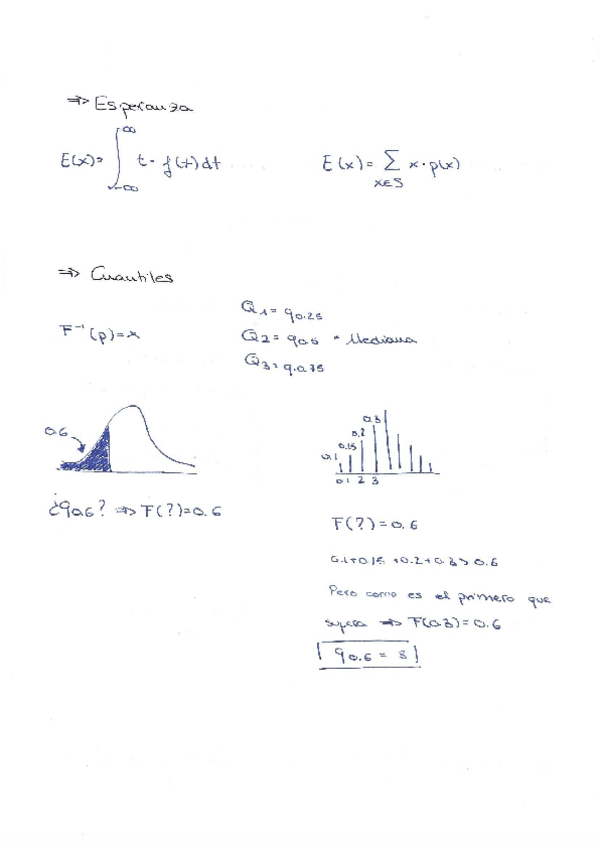 ⇒ Esperanza
E(x)= ∫_{-∞}^{∞} t · f(t) dt
E(x) = Σ_{x∈S} x · p(x)
⇒ Cuantiles
F⁻¹(p)=x
Q1= q0.25
Q2= q0.5 = Mediana
Q3= q.0.75
0.6
¿q0.6? ⇒ F(?)=0.6
0.1 0.15 0.2 0.3
0 1 2 3
F(?)=0.6
0.1+0.15 +0.2+0.3 > 0.6
Pero como es el primero que
supera ⇒ F(0.3)=0.6
q0.6 = 3